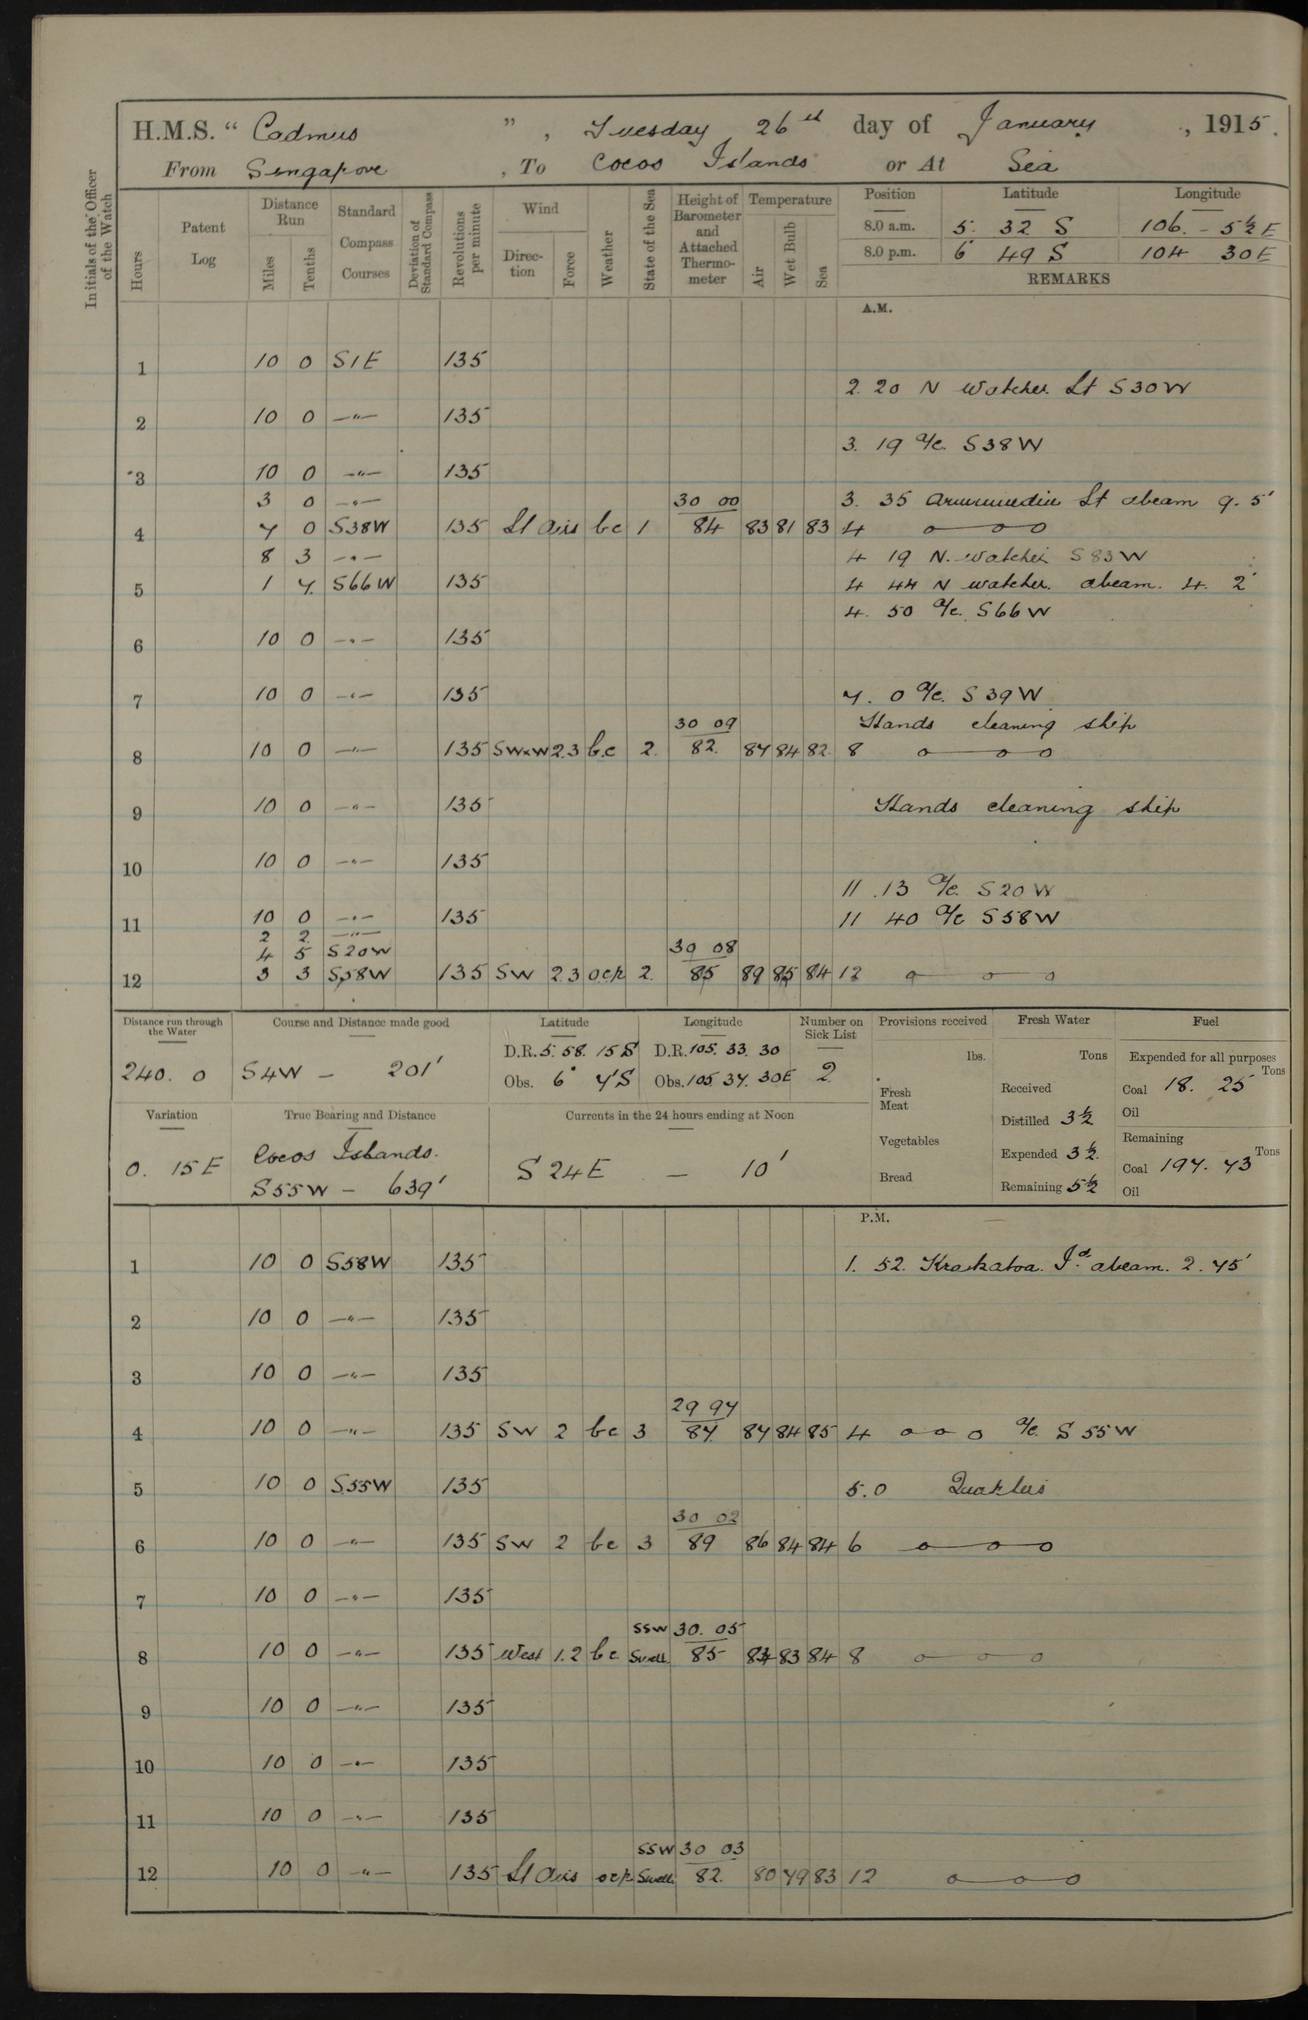 H.M.S. “ Cadmus ” , Tuesday 26th day of January , 1915.
From Singapore , To Cocos Islands or At Sea
Initials of the Officer of the Watch
Hours
Patent Log
Distance Run
Miles
Tenths
Standard Compass Courses
Deviation of Standard Compass
Revolutions per minute
Wind
Direction
Force
Weather
State of the Sea
Height of Barometer and Attached Thermometer
Temperature
Air
Wet Bulb
Sea
Position Latitude Longitude
8.0 a.m. 5. 32 S 106. - 5½ E
8.0 p.m. 6 49 S 104 30 E
REMARKS
A.M.
1 10 0 S1E 135
2. 20 N Watcher Lt S30W
2 10 0 -"- 135
3. 19 a/c. S38W
3 10 0 -"- 135
3 0 -"- 30 00 3. 35 Lt abeam 9. 5'
4 7 0 S38W 135 Lt Airs bc 1 84 83 81 83 4
8 3 -"- 4 19 N. Watcher S83W
5 1 7 S66W 135 4 44 N Watcher abeam. 4. 2'
4. 50 a/c. S66W
6 10 0 -"- 135
7 10 0 -"- 135 7. 0 a/c. S39W
30 09 Hands cleaning ship
8 10 0 -"- 135 SWxW 2.3 b.c 2. 82. 87 84 82 8
9 10 0 -"- 135 Hands cleaning ship
10 10 0 -"- 135
11 .13 a/c. S20W
11 10 0 -"- 135 11 40 a/c S58W
2 2 -"-
4 5 S20W 30 08
12 3 3 S58W 135 SW 2.3 ocp 2. 85 89 85 84 12
Distance run through the Water
240. 0
Course and Distance made good
S4W - 201'
Latitude
D.R. 5. 58. 15 S
Obs. 6° 7' S
Longitude
D.R. 105. 33. 30
Obs. 105 37. 30E
Number on Sick List
2
Provisions received
lbs.
Fresh Meat
Vegetables
Bread
Fresh Water
Tons
Received
Distilled 3½
Expended 3½
Remaining 5½
Fuel
Expended for all purposes
Tons
Coal 18. 25
Oil
Remaining
Tons
Coal 197. 73
Oil
Variation
0. 15 E
True Bearing and Distance
Cocos Islands.
S55W - 639'
Currents in the 24 hours ending at Noon
S 24 E - 10'
P.M.
1 10 0 S58W 135 1. 52. Krakatoa. Id. abeam. 2. 75'
2 10 0 -"- 135
3 10 0 -"- 135
29 97
4 10 0 -"- 135 SW 2 bc 3 87. 87 84 85 4 a/c. S 55 W
5 10 0 S55W 135 5. 0 Quarters
30 02
6 10 0 -"- 135 SW 2 bc 3 89 86 84 84 6
7 10 0 -"- 135
SSW 30. 05
8 10 0 -"- 135 West 1.2 bc Swell 85 84 83 84 8
9 10 0 -"- 135
10 10 0 -"- 135
11 10 0 -"- 135
SSW 30 03
12 10 0 -"- 135 Lt Airs ocp Swell 82. 80 79 83 12